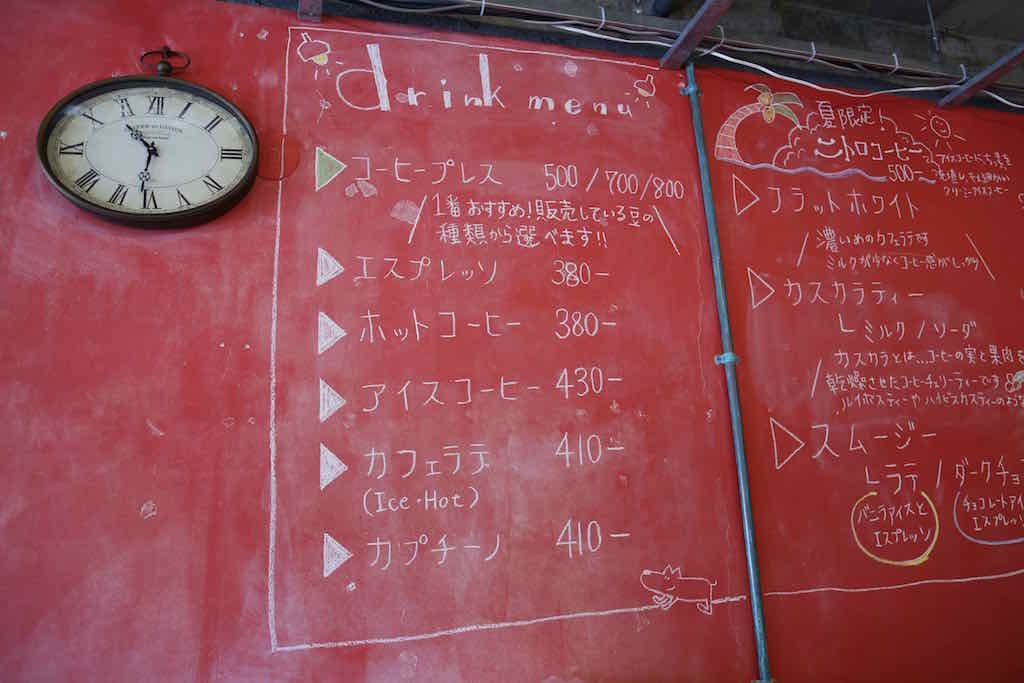 drink menu
コーヒープレス 500/700/800
1番おすすめ!販売している豆の
種類から選べます!!
エスプレッソ 380-
ホットコーヒー 380-
アイスコーヒー 430-
カフェラテ 410-
(Ice・Hot)
カプチーノ 410-
夏限定!
ニトロコーヒー
500-
フラットホワイト
濃いめのカフェラテです
ミルクが少なくコーヒー感がしっかり
カスカラティー
└ミルク/ソーダ
カスカラとは...コーヒーの実と果肉を
乾燥させたコーヒーチェリーティーです
ルイボスティーやハイビスカスティーのような
スムージー
└ラテ/ダークチョ
バニラアイスと
エスプレッソ
チョコレートアイ
エスプレッソ
XII
I
II
III
IIII
V
VI
VII
VIII
IX
X
XI